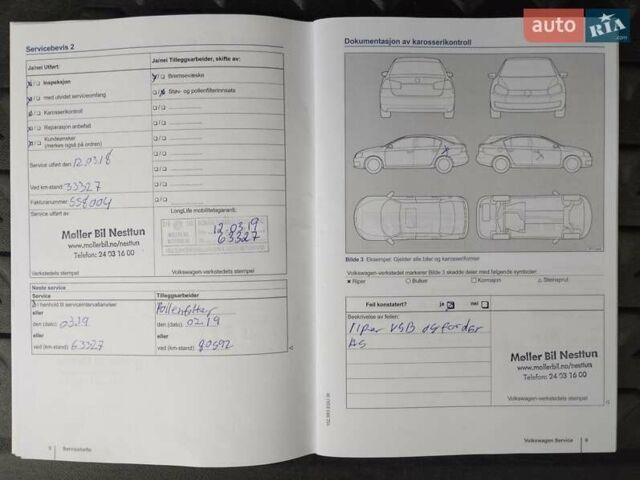 auto RIA.com
Servicebevis 2
Ja/nei Utført:
Inspeksjon
med utvidet serviceomfang
Karosserikontroll
Reparasjon anbefalt
Kundeønsker
(merkes også på ordren)
Service utført den 12.03.18
Ved km-stand: 33327
Fakturanummer: 558004
Service utført av
Møller Bil Nesttun
www.mollerbil.no/nesttun
Telefon: 24 03 16 00
Verkstedets stempel
Ja/nei Tilleggsarbeider, skifte av:
Bremsevæske
Støv- og pollenfilterinnsats
LongLife mobilitetsgaranti:
12.03.19
63327
Verkstedets stempel
Neste service
Service
I henhold til serviceintervallanviser
eller
den (dato): 03.19
eller
ved (km-stand): 63327
Tilleggsarbeider
Pollenfilter
den (dato): 02.19
eller
ved (km-stand):
8
Servicehefte
Dokumentasjon av karosserikontroll
Bilde 3 Eksempel: Gjelder alle biler og karosseriformer
Volkswagen-verkstedet markerer Bilde 3 skadde deler med følgende symboler:
× Riper ○ Bulker □ Korrosjon △ Steinsprut
Feil konstatert? ja nei
Beskrivelse av feilen:
riper VSB og fordør
HS
Møller Bil Nesttun
www.mollerbil.no/nesttun
Telefon: 24 03 16 00
Volkswagen-verkstedets stempel
Volkswagen Service
9